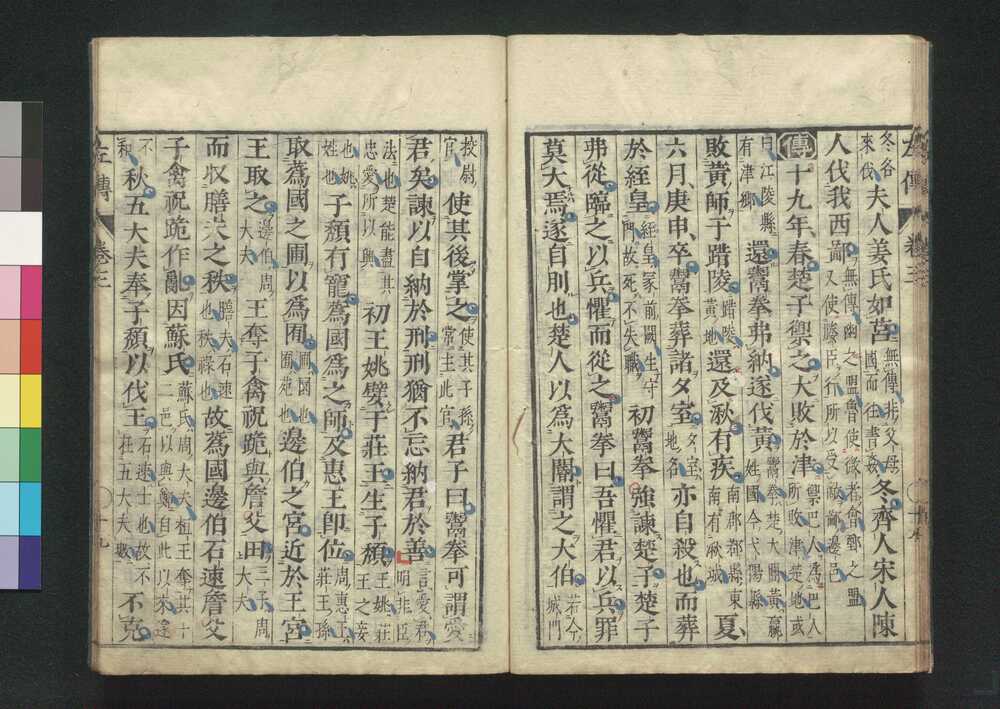 冬各來伐夫人姜氏如莒無傳非父母國而往書姦冬齊人宋人陳
人伐我西鄙無傳幽之盟魯使微者會鄄之盟又使媵臣行所以受敵鄙邊邑
傳十九年春楚子禦之大敗於津禦巴人為巴人所敗津楚地或
曰江陵縣有津鄉還鬻拳弗納遂伐黃鬻拳楚大閽黃嬴姓國今弋陽縣
敗黃師于踖陵踖陵黃地還及湫有疾南郡鄀縣東南有湫城夏
六月庚申卒鬻拳葬諸夕室夕室地名亦自殺也而葬
於絰皇絰皇冢前闕生守門故死不失職初鬻拳強諫楚子楚子
弗從臨之以兵懼而從之鬻拳曰吾懼君以兵罪
莫大焉遂自刖也楚人以為大閽謂之大伯若今城門
校尉官使其後掌之使其子孫常主此官君子曰鬻拳可謂愛
君矣諫以自納於刑刑猶不忘納君於善言愛君明非臣
法也楚能盡其忠愛所以興初王姚嬖于莊王生子頹王姚莊王之妾
也姚姓也子頹有寵蒍國為之師及惠王即位周惠王莊王孫
取蒍國之圃以為囿圃園也囿苑也邊伯之宮近於王宮
王取之邊伯周大夫王奪子禽祝跪與詹父田三子周大夫
而收膳夫之秩膳夫石速也秩祿也故蒍國邊伯石速詹父
子禽祝跪作亂因蘇氏蘇氏周大夫桓王奪其十二邑以與鄭自此以來遂
不和秋五大夫奉子頹以伐王石速士也故不在五大夫數不克
左傳 卷三 十九